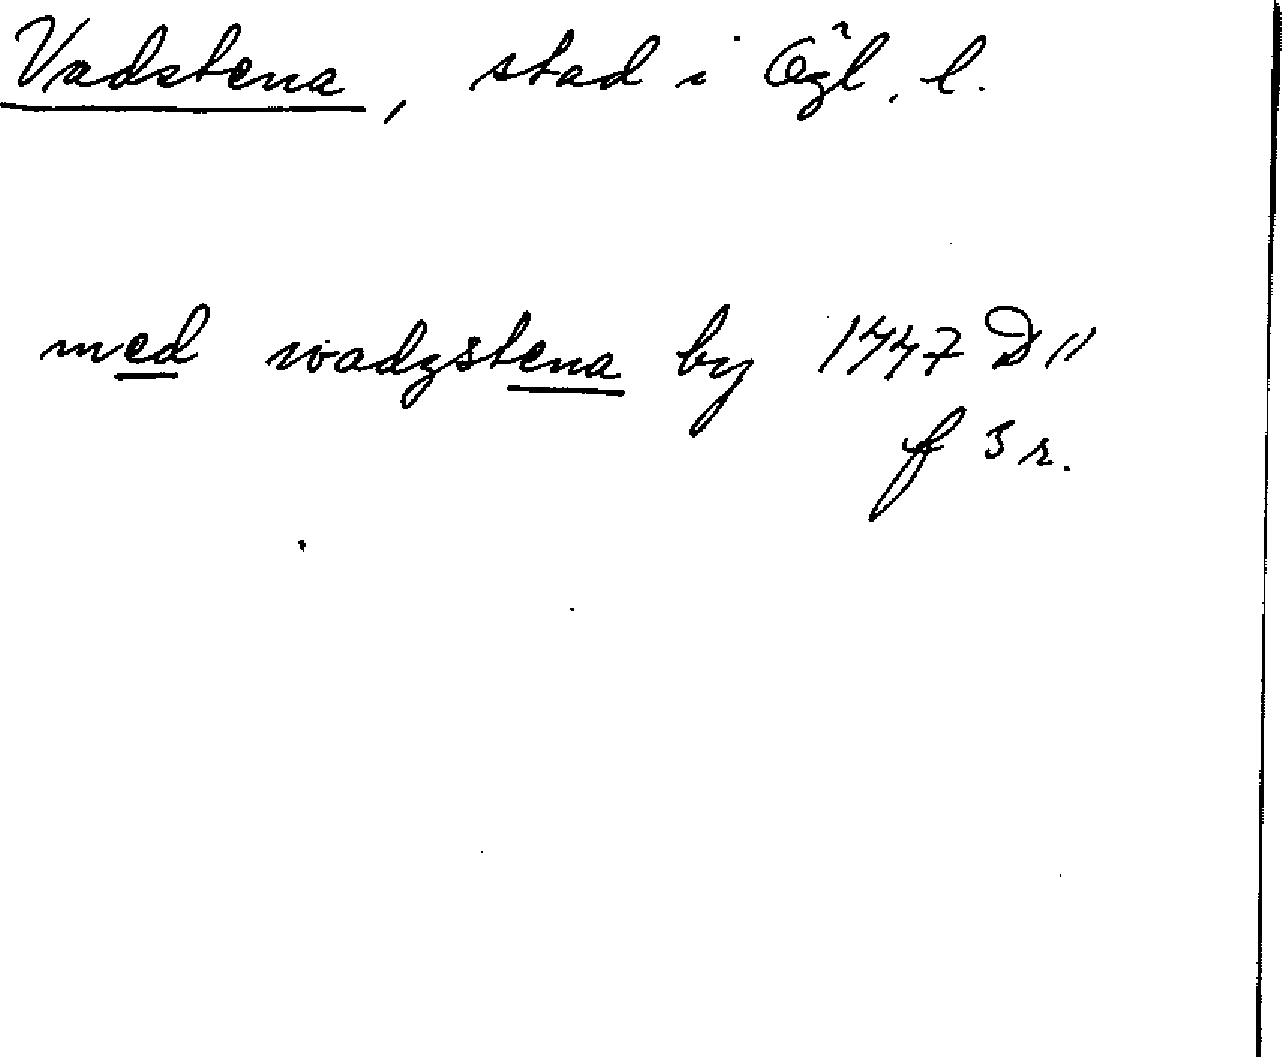 Vadstena, stad i Ögl. l.
med wadzstena by 1447 D 11
f 3 r.